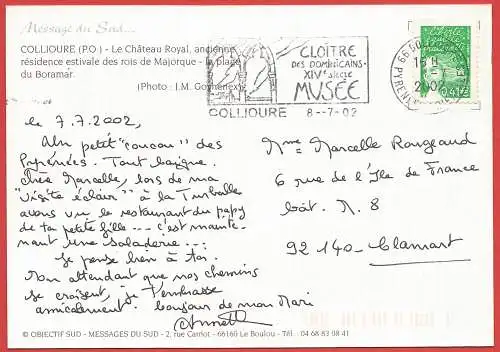 Message du Sud...
COLLIOURE (P.O) - Le Château Royal, ancienne
résidence estivale des rois de Majorque - la plage
du Boramar.
(Photo : J.M. Goyhenex)
CLOÎTRE
DES DOMINICAINS
XIVe siècle
MUSÉE
COLLIOURE 8 -7-02
0,41€
le 7.7.2002,
Un petit "coucou" des
Pyrénées. Tout baigne.
Chère Marcelle, lors de ma
"visite éclair" à la Turballe
avons vu le restaurant du papy
de ta petite fille --- c'est mainte-
nant une saladerie ...
Je pense bien à toi.
En attendant que nos chemins
se croisent, je t'embrasse
amicalement. bonjour de mon Mari
Annette
Mme Marcelle Rougeaud
6 rue de l'Ile de France
bât. N. 8
92 140 - Clamart
© OBJECTIF SUD - MESSAGES DU SUD - 2, rue Carnot - 66160 Le Boulou - Tél. 04 68 83 08 41